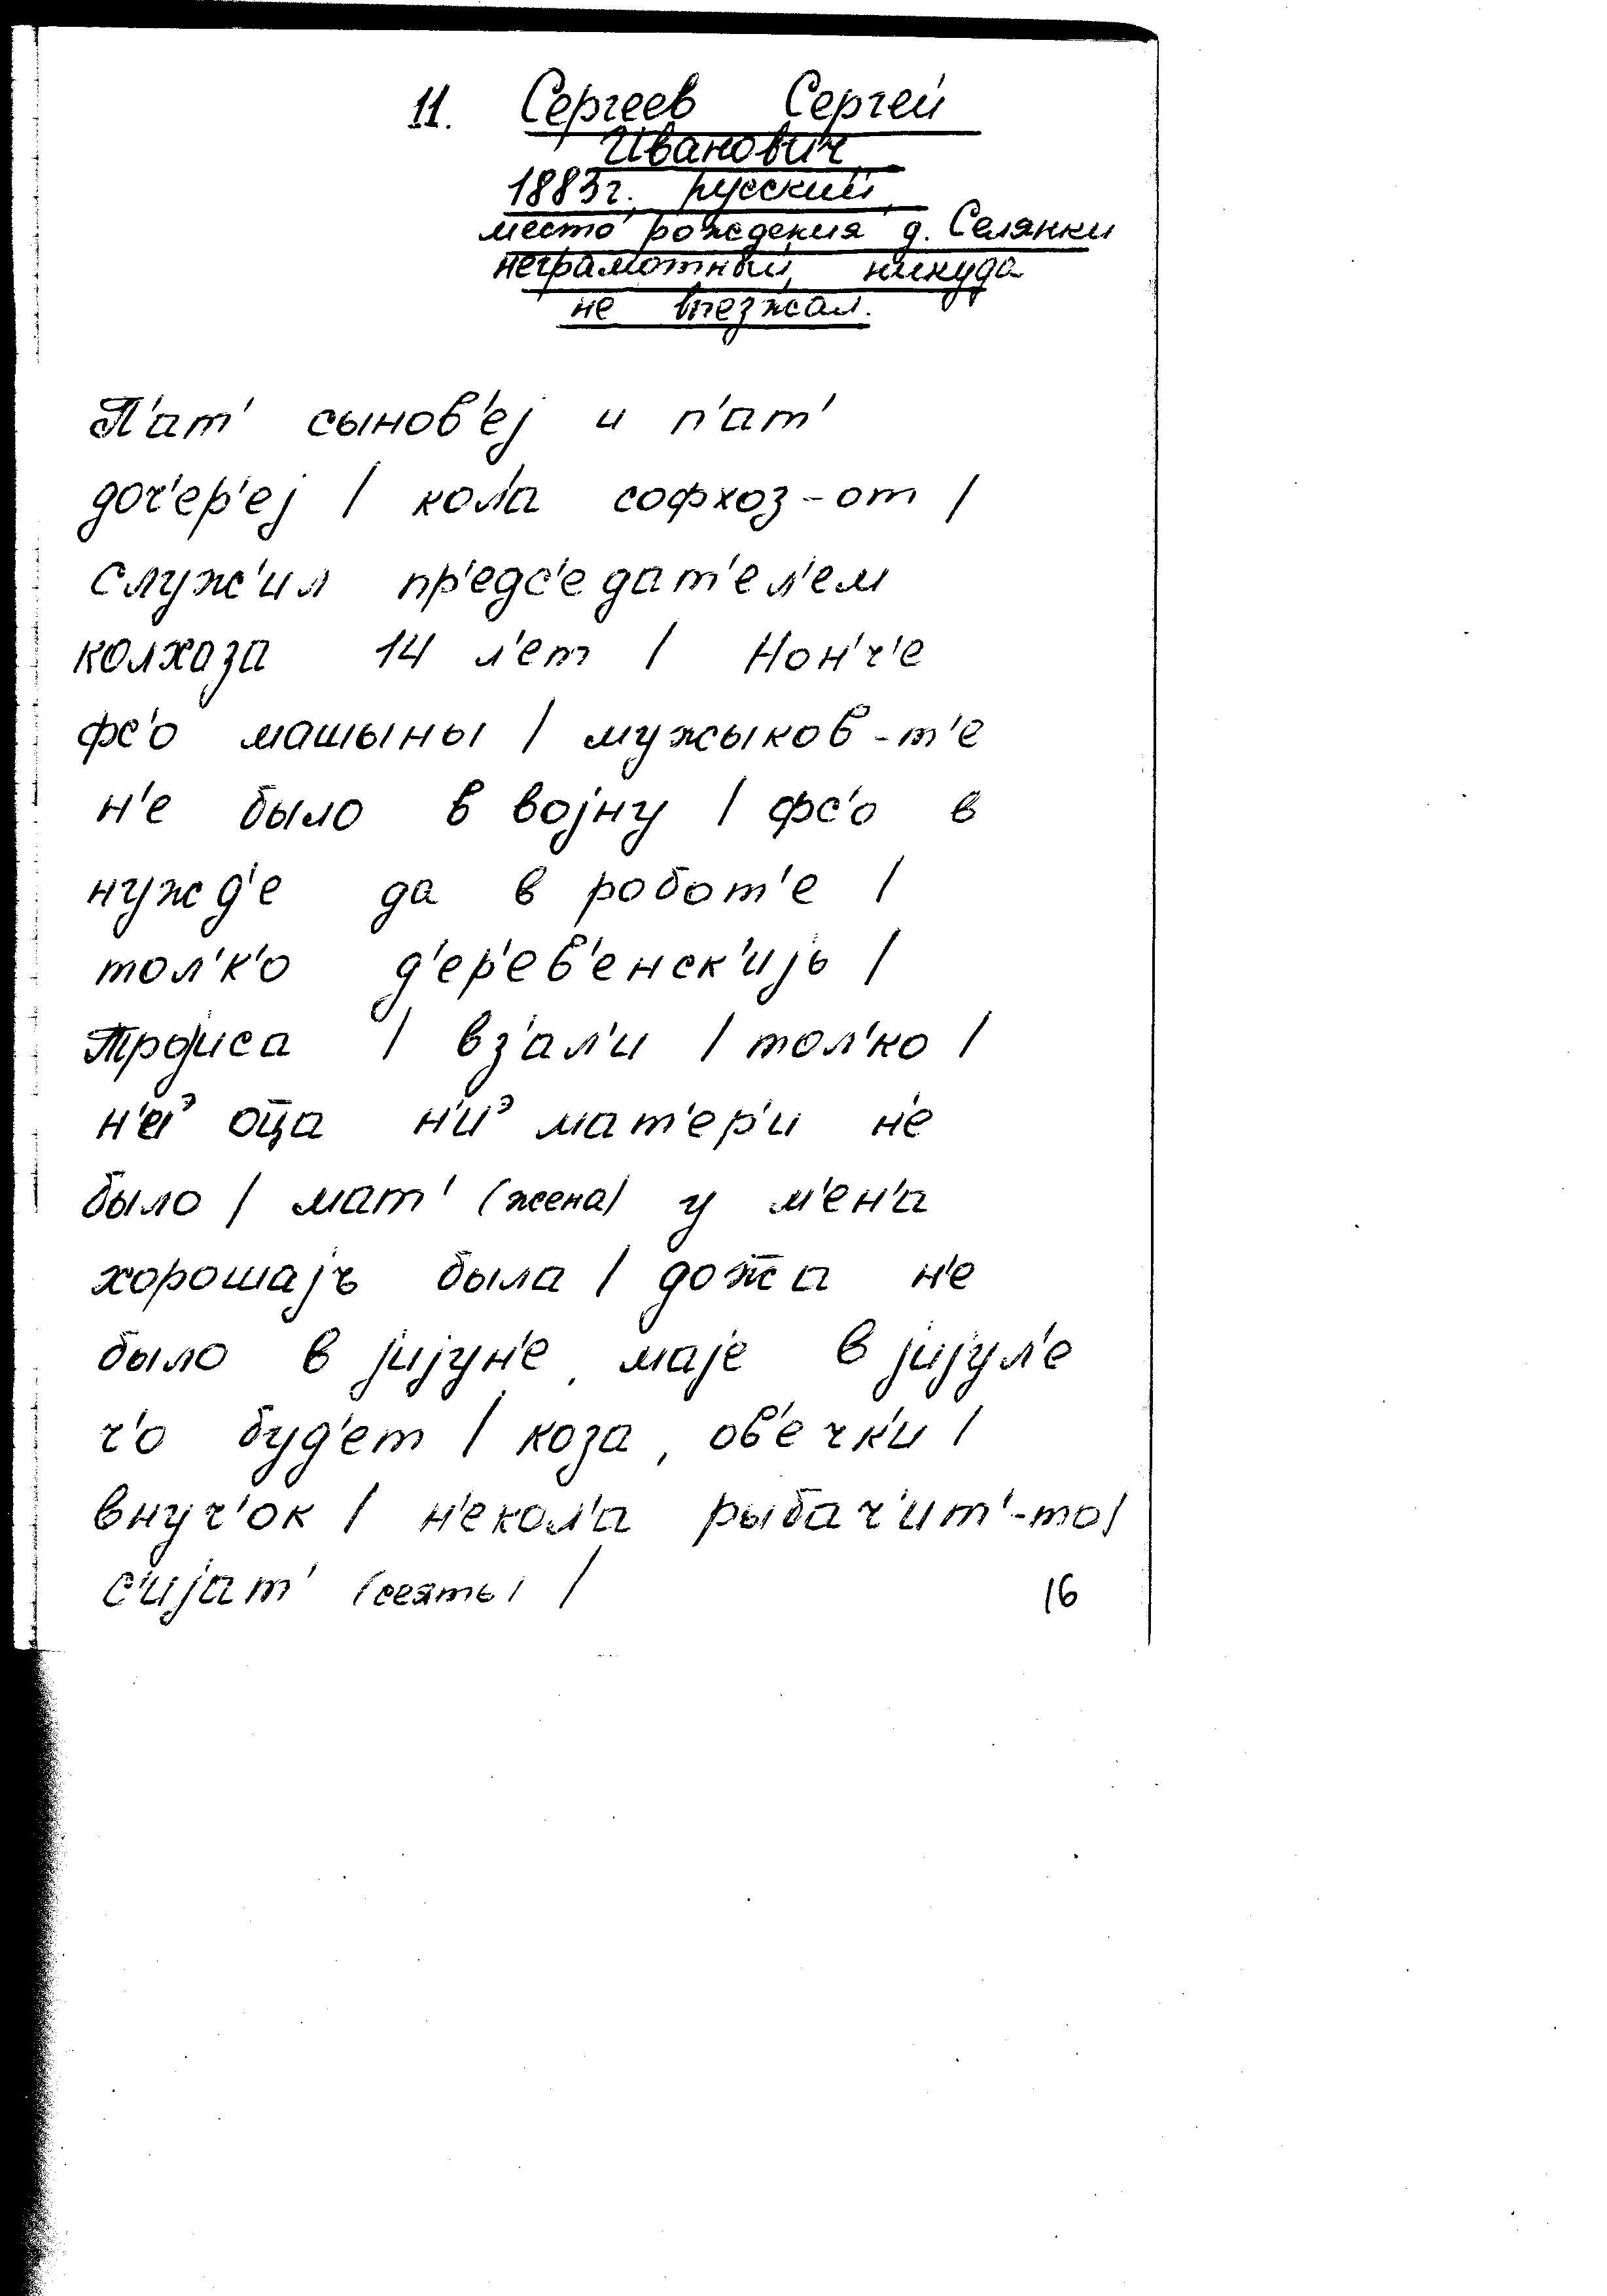 11. Сергеев Сергей
Иванович
1883г., русский,
место рождения д. Селянки
неграмотный, никуда
не выезжал.
П'ат' сынов'еј и п'ат'
доч'ер'еј / кол'а софхоз-от /
служ'ил пр'едс'едат'ел'ем
колхаза 14 л'ет / Нон'ч'е
фс'о машыны / мужыков-т'е
н'е было в војну / фс'о в
нужд'е да в робот'е /
тол'к'о д'ер'ев'енск'ијь /
Тројиса / вз'ал'и / тол'ко /
оца мат'ер'и н'е
было / мат' (жена) у м'ен'а
хорошајъ была / дож̅а н'е
было в јијун'е, маје в јијул'е
ч'о буд'ет / коза, ов'ечк'и /
внуч'ок / н'екол'а рыбач'ит'-то/
с'ијат' (сеять) /
16